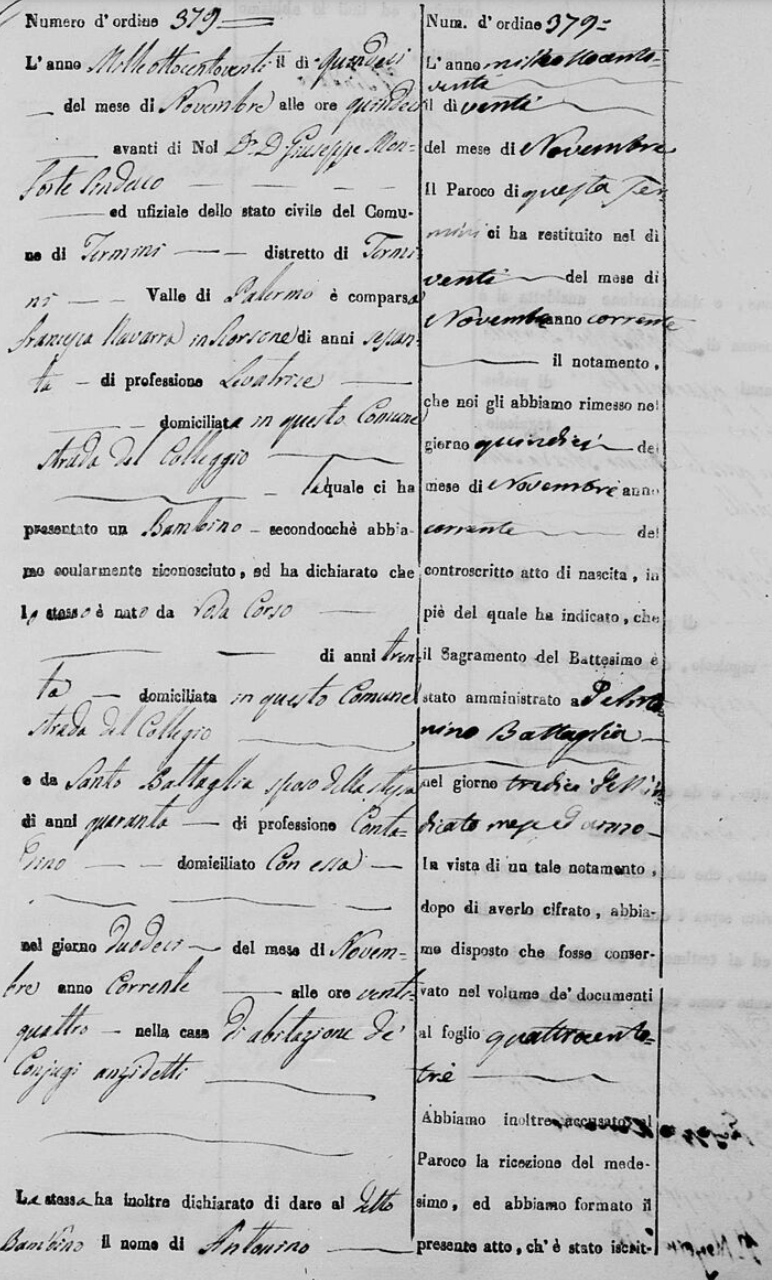 Numero d'ordine 379
L'anno Milleottocentoventi il dì quindeci
del mese di Novembre alle ore quindeci
avanti di Noi Dr. D. Giuseppe Mon=
forte Sindaco
ed ufiziale dello stato civile del Comu-
ne di Termini distretto di Termi
ni Valle di Palermo è comparsa
Francesca Navarra in Scorsone di anni sessan-
ta di professione Levatrice
domiciliata in questo Comune
strada del Colleggio
la quale ci ha
presentato un Bambino secondocchè abbia-
mo ocularmente riconosciuto, ed ha dichiarato che
lo stesso è nato da Rosa Corso
di anni tren
ta domiciliata in questo Comune
strada del Collegio
e da Santo Battaglia sposo della stessa
di anni quaranta di professione Conta=
dino domiciliato Con essa
nel giorno duodeci del mese di Novem=
bre anno Corrente alle ore venti=
quattro nella casa di abitazione de'
Conjugi anzidetti
La stessa ha inoltre dichiarato di dare al detto
Bambino il nome di Antonino
Num. d'ordine 379=
L'anno milleottocento=
venti
il dì venti
del mese di Novembre
Il Paroco di questa Ter
mini ci ha restituito nel dì
venti del mese di
Novembre anno corrente
il notamento,
che noi gli abbiamo rimesso nel
giorno quindici del
mese di Novembre anno
corrente del
controscritto atto di nascita, in
piè del quale ha indicato, che
il Sagramento del Battesimo è
stato amministrato a
nino Battaglia
nel giorno tredici dell'in
dicato mese ed anno
In vista di un tale notamento,
dopo di averlo cifrato, abbia-
mo disposto che fosse conser-
vato nel volume de' documenti
al foglio quattrocento=
trè
Abbiamo inoltre accusato al
Paroco la ricezione del mede-
simo, ed abbiamo formato il
presente atto, ch'è stato iscrit-